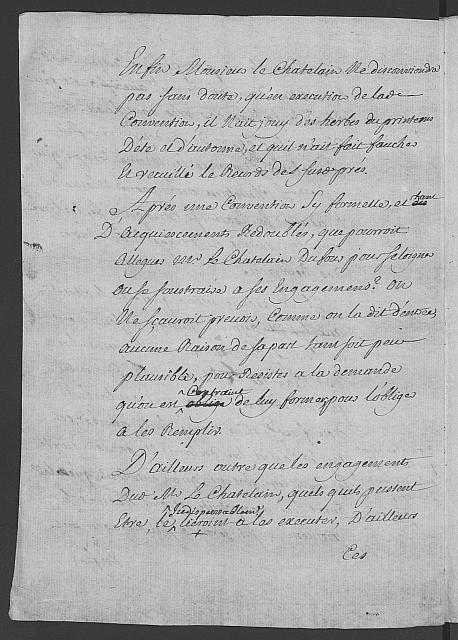 Enfin Monsieur le Chatelain Ne disconviendra
pas sans doute, qu'en execution de lade
Convention, il N'ait jouy des herbes du printems
Deté et d'automne, et quil n'ait fait faucher
Et recueillé le Records des susd prés.
Aprés une Convention Sy formelle, et tant
D'acquiescements Redoublés, que pourroit
alleguer Mr Le Chatelain Dufour pour seloigner
ou se soustraire a ses Engagemens? on
Ne sçauroit prevoir, Comme on la dit d'entrée,
aucune Raison de sa part tant soit peu
plausible, pour Resister a la demande
qu'on est contraint de luy former pour l'obliger
a les Remplir.
D'ailleurs outre que les engagements
Dud Mr Le Chatelain, quels quils puissent
Etre, le lieroint a les executer, D'ailleurs
Ces